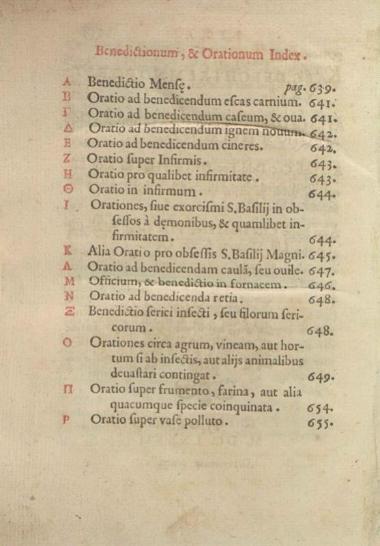 Benedictionum, & Orationum Index.
Α Benedictio Mensę. pag. 639.
Β Oratio ad benedicendum escas carnium. 641.
Γ Oratio ad benedicendum caseum, & oua. 641.
Δ Oratio ad benedicendum ignem nouum. 642.
Ε Oratio ad benedicendum cineres. 642.
Ζ Oratio super Infirmis. 643.
Η Oratio pro qualibet infirmitate. 643.
Θ Oratio in infirmum. 644.
Ι Orationes, siue exorcismi S. Basilij in ob-
sessos à dęmonibus, & quamlibet in-
firmitatem. 644.
Κ Alia Oratio pro obsessis S. Basilij Magni. 645.
Λ Oratio ad benedicendam caulā, seu ouile. 647.
Μ Officium, & benedictio in fornacem. 646.
Ν Oratio ad benedicenda retia. 648.
Ξ Benedictio serici insecti, seu filorum seri-
corum. 648.
Ο Orationes circa agrum, vineam, aut hor-
tum si ab insectis, aut alijs animalibus
deuastari contingat. 649.
Π Oratio super frumento, farina, aut alia
quacumque specie coinquinata. 654.
Ρ Oratio super vase polluto. 655.